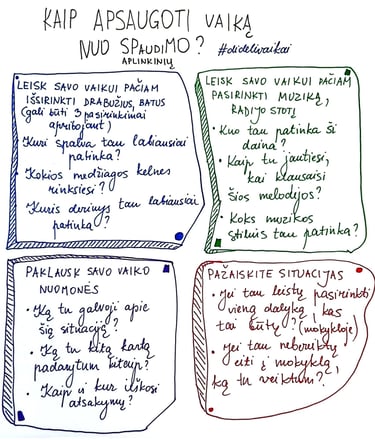 KAIP APSAUGOTI VAIKĄ
NUO SPAUDIMO?
APLINKINIŲ
#didelivaikai
LEISK SAVO VAIKUI PAČIAM
IŠSIRINKTI DRABUŽIUS, BATUS
(gali būti 3 pasirinkimai
apribojant)
Kuri spalva tau labiausiai
patinka?
• Kokios medžiagos kelnes
rinksiesi?
Kuris derinys tau labiausiai
patinka?
LEISK SAVO VAIKUI PAČIAM
PASIRINKTI MUZIKĄ,
RADIJO STOTĮ
• Kuo tau patinka ši
daina?
• Kaip tu jautiesi,
kai klausaisi
šios melodijos?
• Koks muzikos
stilius tau patinka?
PAKLAUSK SAVO VAIKO
NUOMONĖS
• Ką tu galvoji apie
šią situaciją?
• Ką tu kitą kartą
padarytum kitaip?
• Kaip ir kur ieškosi
atsakymų?
PAŽAISKITE SITUACIJAS
• Jei tau leistų pasirinkti
vieną dalyką, kas
tai būtų? (mokykloje)
• Jei tau nebereiktų
eiti į mokyklą,
ką tu veiktum?